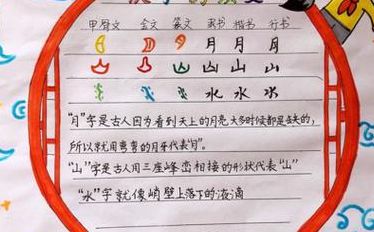 甲骨文 金文 篆文 隶书 楷书 行书
月 月 月
山 山 山
水 水 水
"月"字是古人因为看到天上的月亮大多时候都是缺的,
所以就用弯弯的月牙代表"月"。
"山"字是古人用三座峰峦相接的形状代表"山"
"水"字就像峭壁上落下的液滴